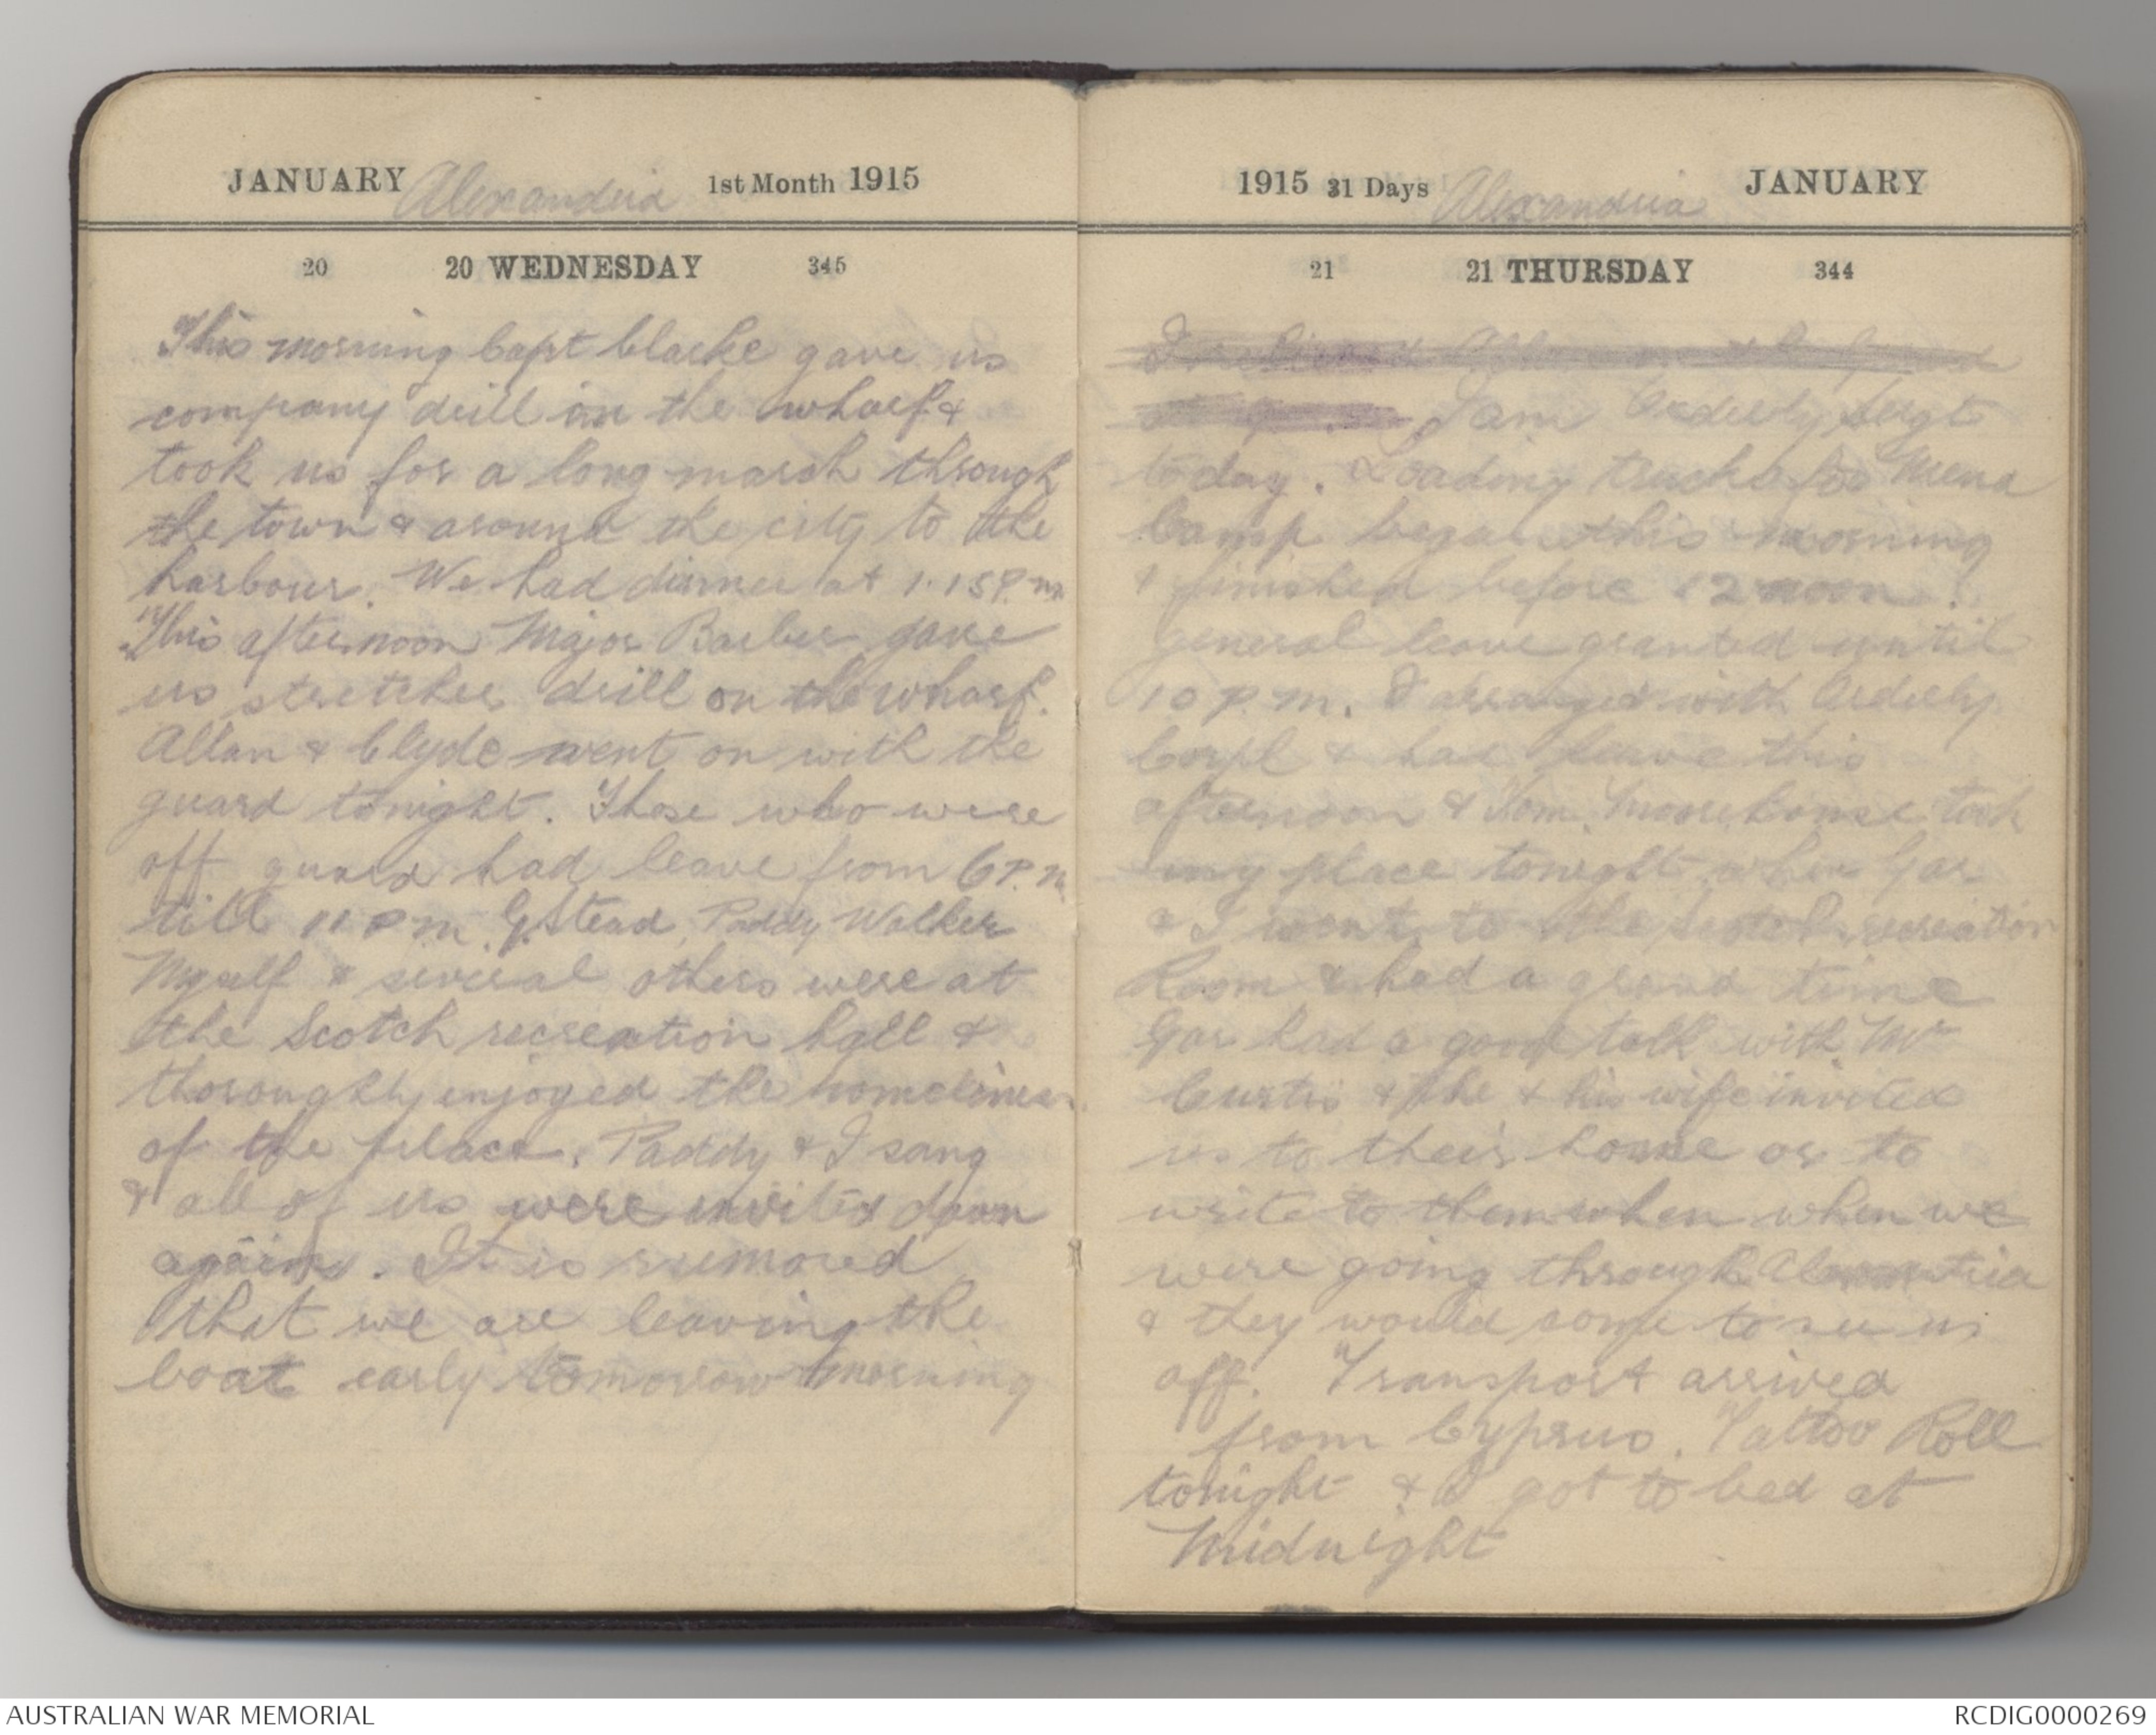 JANUARY Alexandria 1st Month 1915
20 20 WEDNESDAY 345
This morning Capt Clarke gave us
company drill on the wharf &
took us for a long march through
the town & around the city to the
harbour. We had dinner at 1.15 P.m
This afternoon Major Barber gave
us stretcher drill on the wharf.
Allan & Clyde went on with the
guard tonight. Those who were
off guard had leave from 6 P.m
till 11 P m. G. Stead, Paddy Walker
Myself & several others were at
the Scotch recreation hall &
thoroughly enjoyed the
of the place. Paddy & I sang
& all of us were invited down
again. It is rumored
that we are leaving the
boat early tomorrow morning
1915 31 Days Alexandria JANUARY
21 21 THURSDAY 344
I am Orderly Sergt
today. Loading trucks for Mena
Camp began this morning
& finished before 12 noon.
General leave granted until
10 P.m. I arranged with Orderly
Corpl & had leave this
afternoon & Tom Moorehouse took
my place tonight when Gar
& I went to the Scotch recreation
Room & had a grand time
Gar had a good talk with Mr
Curtis & he & his wife invited
us to their home or to
write to them when when we
were going through
& they would come to see us
off. Transport arrived
from Cyprus. Tattoo Roll
tonight & I got to bed at
Midnight
AUSTRALIAN WAR MEMORIAL
RCDIG0000269